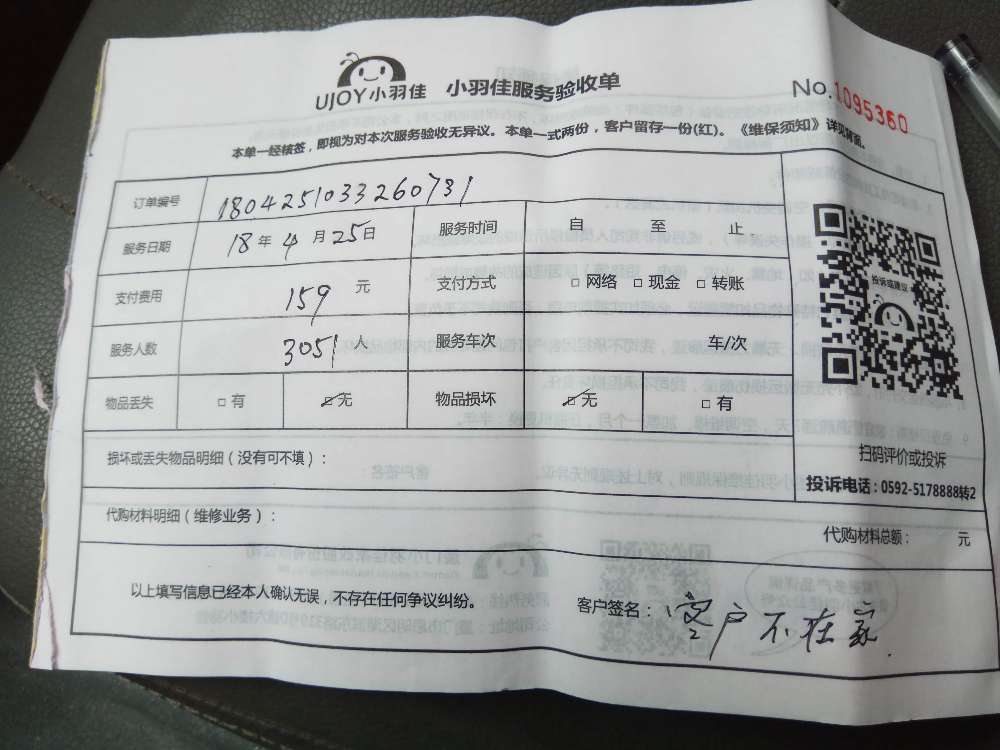 UJOY小羽佳 小羽佳服务验收单 No.1095360
本单一经核签，即视为对本次服务验收无异议。本单一式两份，客户留存一份(红)。《维保须知》详见背面。
订单编号 1804251033260731
服务日期 18年4月25日 服务时间 自 至 止
支付费用 159 元 支付方式 □网络 □现金 □转账
服务人数 3051 人 服务车次 车/次
物品丢失 □有 ☑无 物品损坏 ☑无 □有
投诉或建议
扫码评价或投诉
投诉电话：0592-5178888转2
损坏或丢失物品明细（没有可不填）：
代购材料明细（维修业务）： 代购材料总额： 元
以上填写信息已经本人确认无误，不存在任何争议纠纷。 客户签名：客户不在家